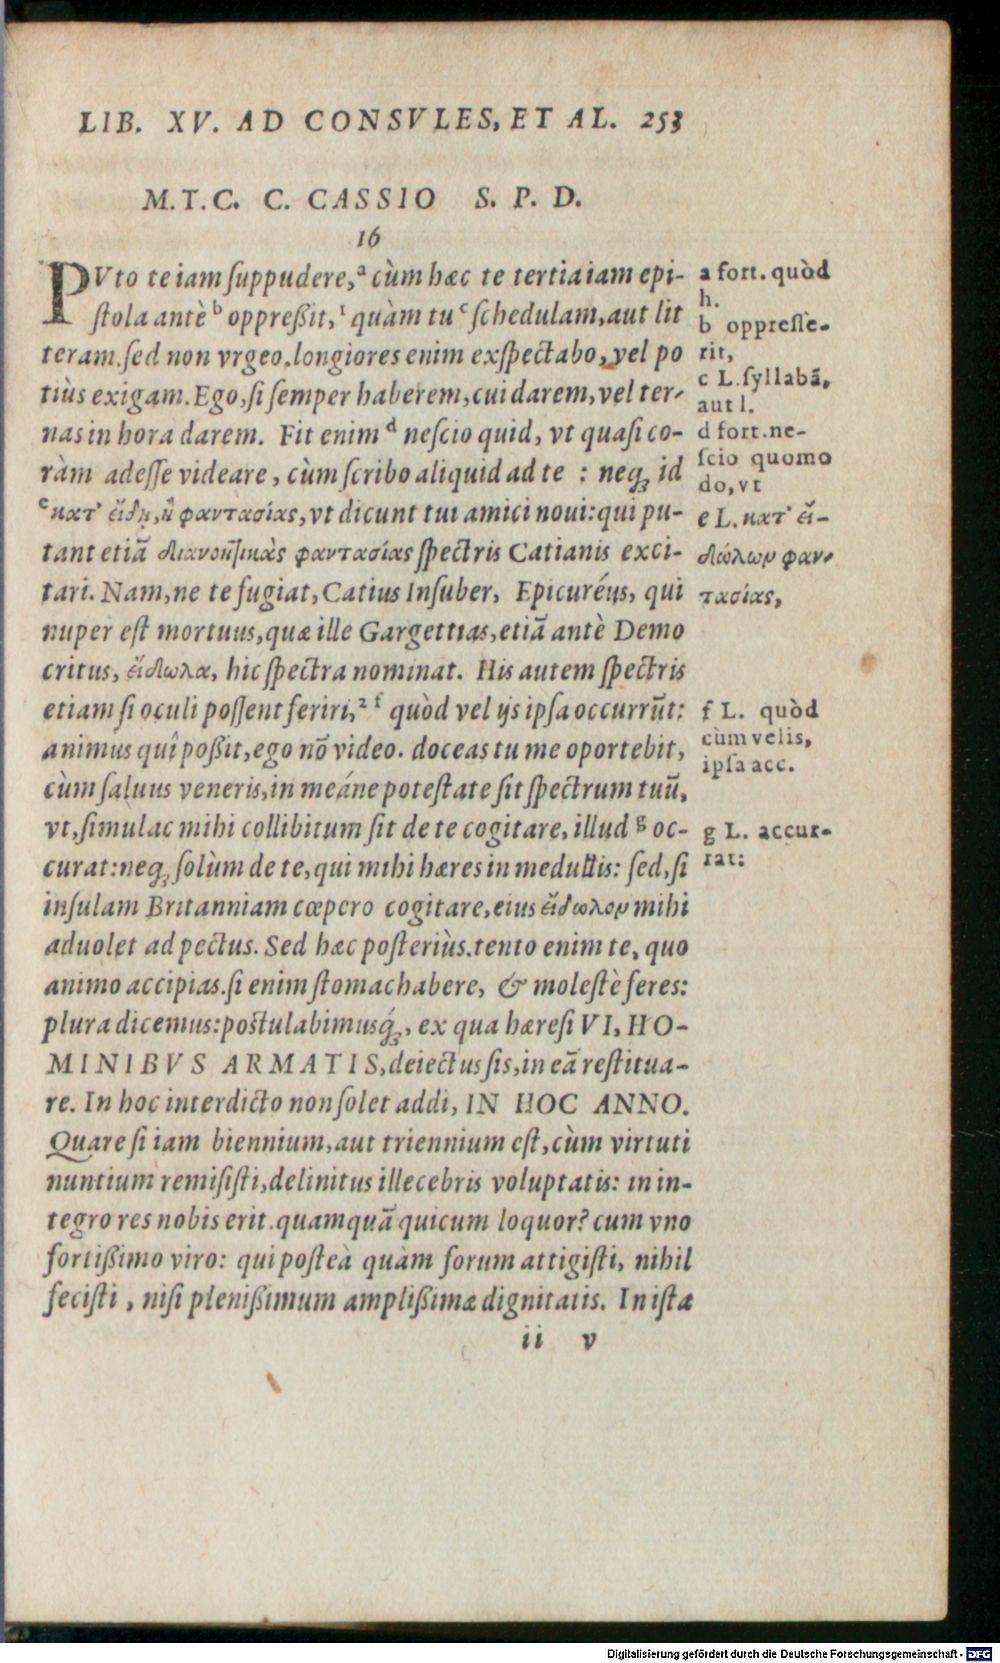 LIB. XV. AD CONSVLES, ET AL. 253
M.T.C. C. CASSIO S. P. D.
16
PVto te iam suppudere,ᵃ cùm hæc te tertia iam epi-
stola antè ᵇ oppreßit,¹ quàm tu ᶜ schedulam, aut lit
teram. sed non vrgeo. longiores enim exspectabo, vel po
tiùs exigam. Ego, si semper haberem, cui darem, vel ter-
nas in hora darem. Fit enim ᵈ nescio quid, vt quasi co-
ràm adesse videare, cùm scribo aliquid ad te : neqꝫ id
ᵉ κατ' εἴδη, ἢ φαντασίας, vt dicunt tui amici noui: qui pu-
tant etiã διανοητικὰς φαντασίας spectris Catianis exci-
tari. Nam, ne te fugiat, Catius Insuber, Epicuréus, qui
nuper est mortuus, quæ ille Gargettias, etiã antè Demo
critus, εἴδωλα, hic spectra nominat. His autem spectris
etiam si oculi possent feriri,² ᶠ quòd vel ijs ipsa occurrũt:
animus quî poßit, ego nõ video. doceas tu me oportebit,
cùm saluus veneris, in meáne potestate sit spectrum tuũ,
vt, simul ac mihi collibitum sit de te cogitare, illud ᵍ oc-
curat: neqꝫ solùm de te, qui mihi hæres in medullis: sed, si
insulam Britanniam cœpero cogitare, eius εἴδωλον mihi
aduolet ad pectus. Sed hæc posteriùs. tento enim te, quo
animo accipias. si enim stomachabere, & molestè feres:
plura dicemus: postulabimusq́ꝫ, ex qua hæresi VI, HO-
MINIBVS ARMATIS, deiectus sis, in eã restitua-
re. In hoc interdicto non solet addi, IN HOC ANNO.
Quare si iam biennium, aut triennium est, cùm virtuti
nuntium remisisti, delinitus illecebris voluptatis: in in-
tegro res nobis erit. quamquã quicum loquor? cum vno
fortißimo viro: qui posteà quàm forum attigisti, nihil
fecisti , nisi plenißimum amplißimæ dignitatis. In ista
ii v
a fort. quòd
h.
b oppresse-
rit,
c L. syllabã,
aut l.
d fort. ne-
scio quomo
do, vt
e L. κατ' εἰ-
δώλων φαν-
τασίας,
f L. quòd
cùm velis,
ipsa acc.
g L. accur-
rat:
Digitalisierung gefördert durch die Deutsche Forschungsgemeinschaft - DFG